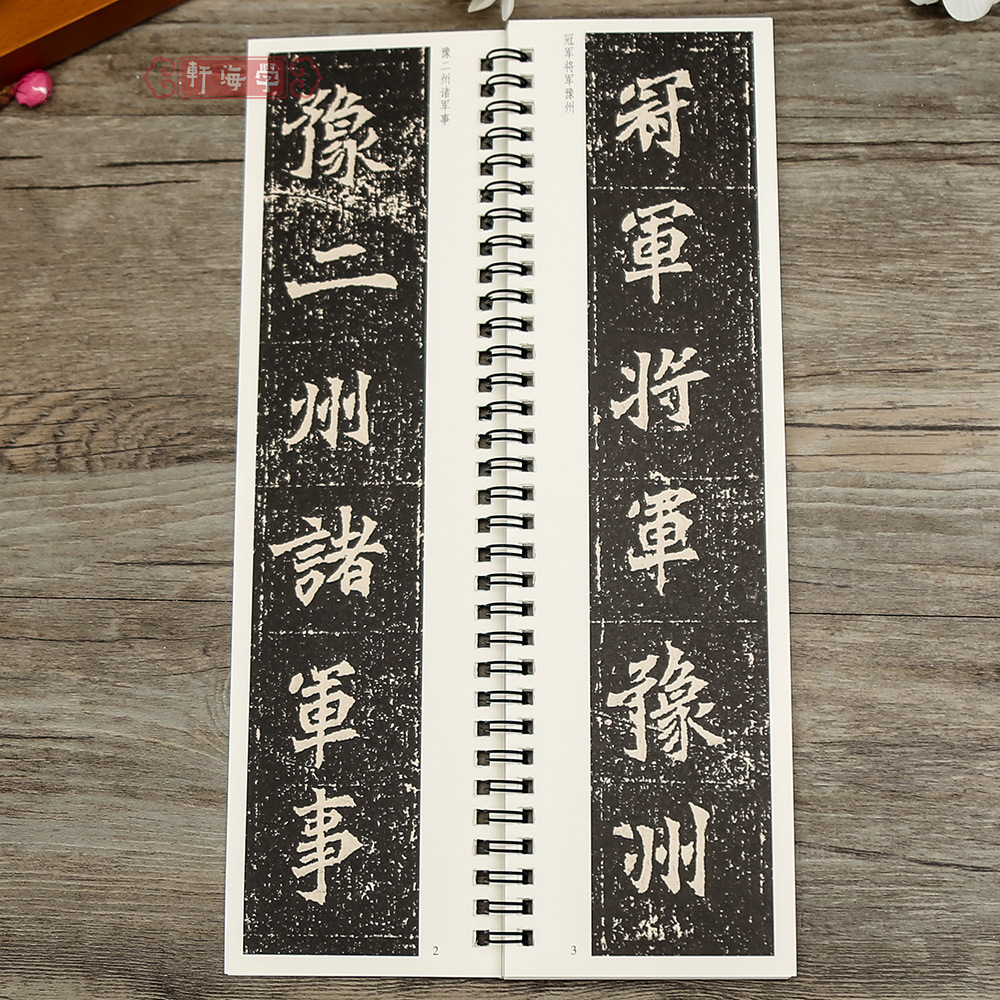 軒海學
豫二州诸军事
豫二州諸軍事
2
冠军将军豫州
冠軍将軍豫州
3